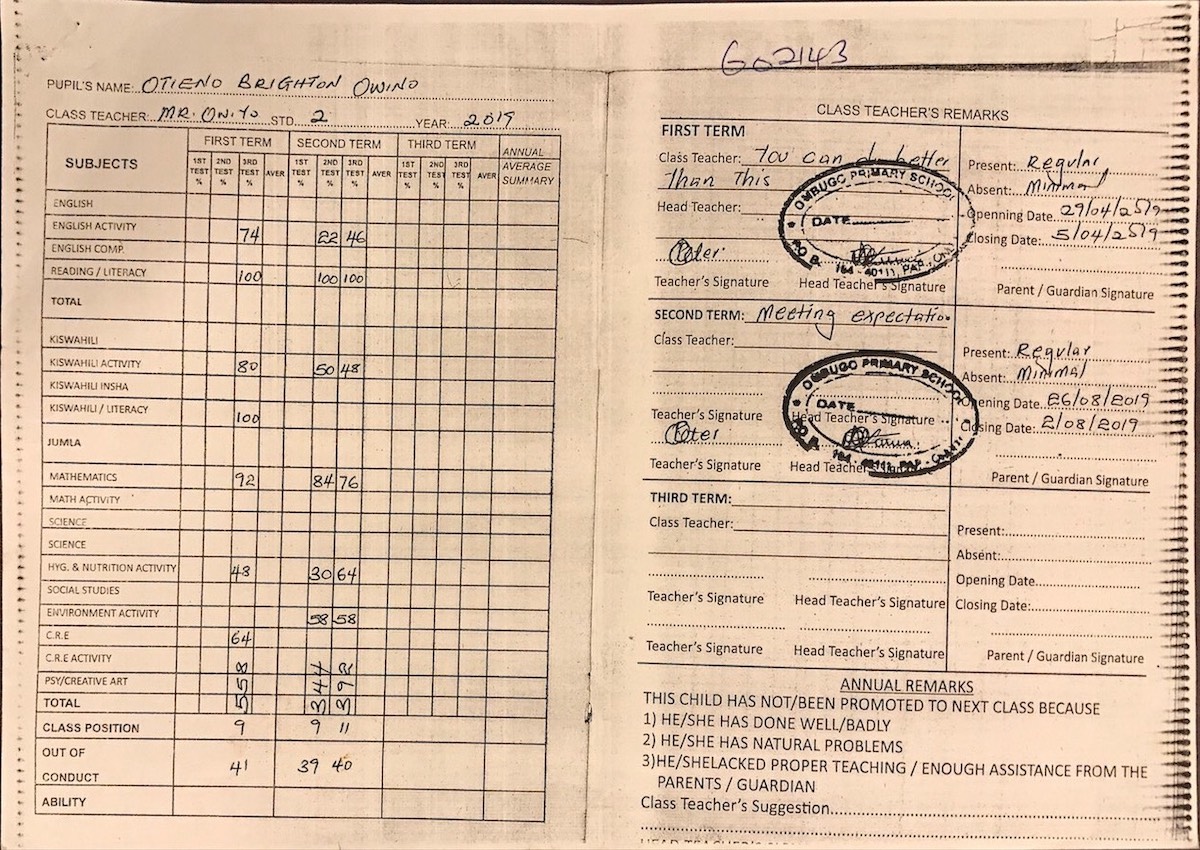 G02143
PUPIL'S NAME: OTIENO BRIGHTON OWINO
CLASS TEACHER: MR. OWITO STD 2 YEAR: 2019
SUBJECTS FIRST TERM SECOND TERM THIRD TERM ANNUAL AVERAGE SUMMARY
1ST TEST % 2ND TEST % 3RD TEST % AVER 1ST TEST % 2ND TEST % 3RD TEST % AVER 1ST TEST % 2ND TEST % 3RD TEST % AVER
ENGLISH
ENGLISH ACTIVITY 74 22 46
ENGLISH COMP.
READING / LITERACY 100 100 100
TOTAL
KISWAHILI
KISWAHILI ACTIVITY 80 50 48
KISWAHILI INSHA
KISWAHILI / LITERACY 100
JUMLA
MATHEMATICS 92 84 76
MATH ACTIVITY
SCIENCE
SCIENCE
HYG. & NUTRITION ACTIVITY 48 30 64
SOCIAL STUDIES
ENVIRONMENT ACTIVITY 58 58
C.R.E 64
C.R.E ACTIVITY
PSY/CREATIVE ART
TOTAL 558 344 392
CLASS POSITION 9 9 11
OUT OF 41 39 40
CONDUCT
ABILITY
CLASS TEACHER'S REMARKS
FIRST TERM
Class Teacher: You can do better
than this
Head Teacher:
Teacher's Signature Head Teacher's Signature
Present: Regular
Absent: Minimal
Openning Date. 29/04/2019
Closing Date: 5/04/2019
Parent / Guardian Signature
OMBUGO PRIMARY SCHOOL
DATE
P.O B. 164 - 40111, PAP
SECOND TERM: Meeting expectation
Class Teacher:
Teacher's Signature Head Teacher's Signature
Teacher's Signature Head Teacher's
Present: Regular
Absent: Minimal
Opening Date. 26/08/2019
Closing Date: 2/08/2019
Parent / Guardian Signature
OMBUGO PRIMARY SCHOOL
DATE
P.O B. 164 - 40111, PAP
THIRD TERM:
Class Teacher:
Teacher's Signature Head Teacher's Signature
Teacher's Signature Head Teacher's Signature
Present:
Absent:
Opening Date
Closing Date:
Parent / Guardian Signature
ANNUAL REMARKS
THIS CHILD HAS NOT/BEEN PROMOTED TO NEXT CLASS BECAUSE
1) HE/SHE HAS DONE WELL/BADLY
2) HE/SHE HAS NATURAL PROBLEMS
3)HE/SHELACKED PROPER TEACHING / ENOUGH ASSISTANCE FROM THE
PARENTS / GUARDIAN
Class Teacher's Suggestion